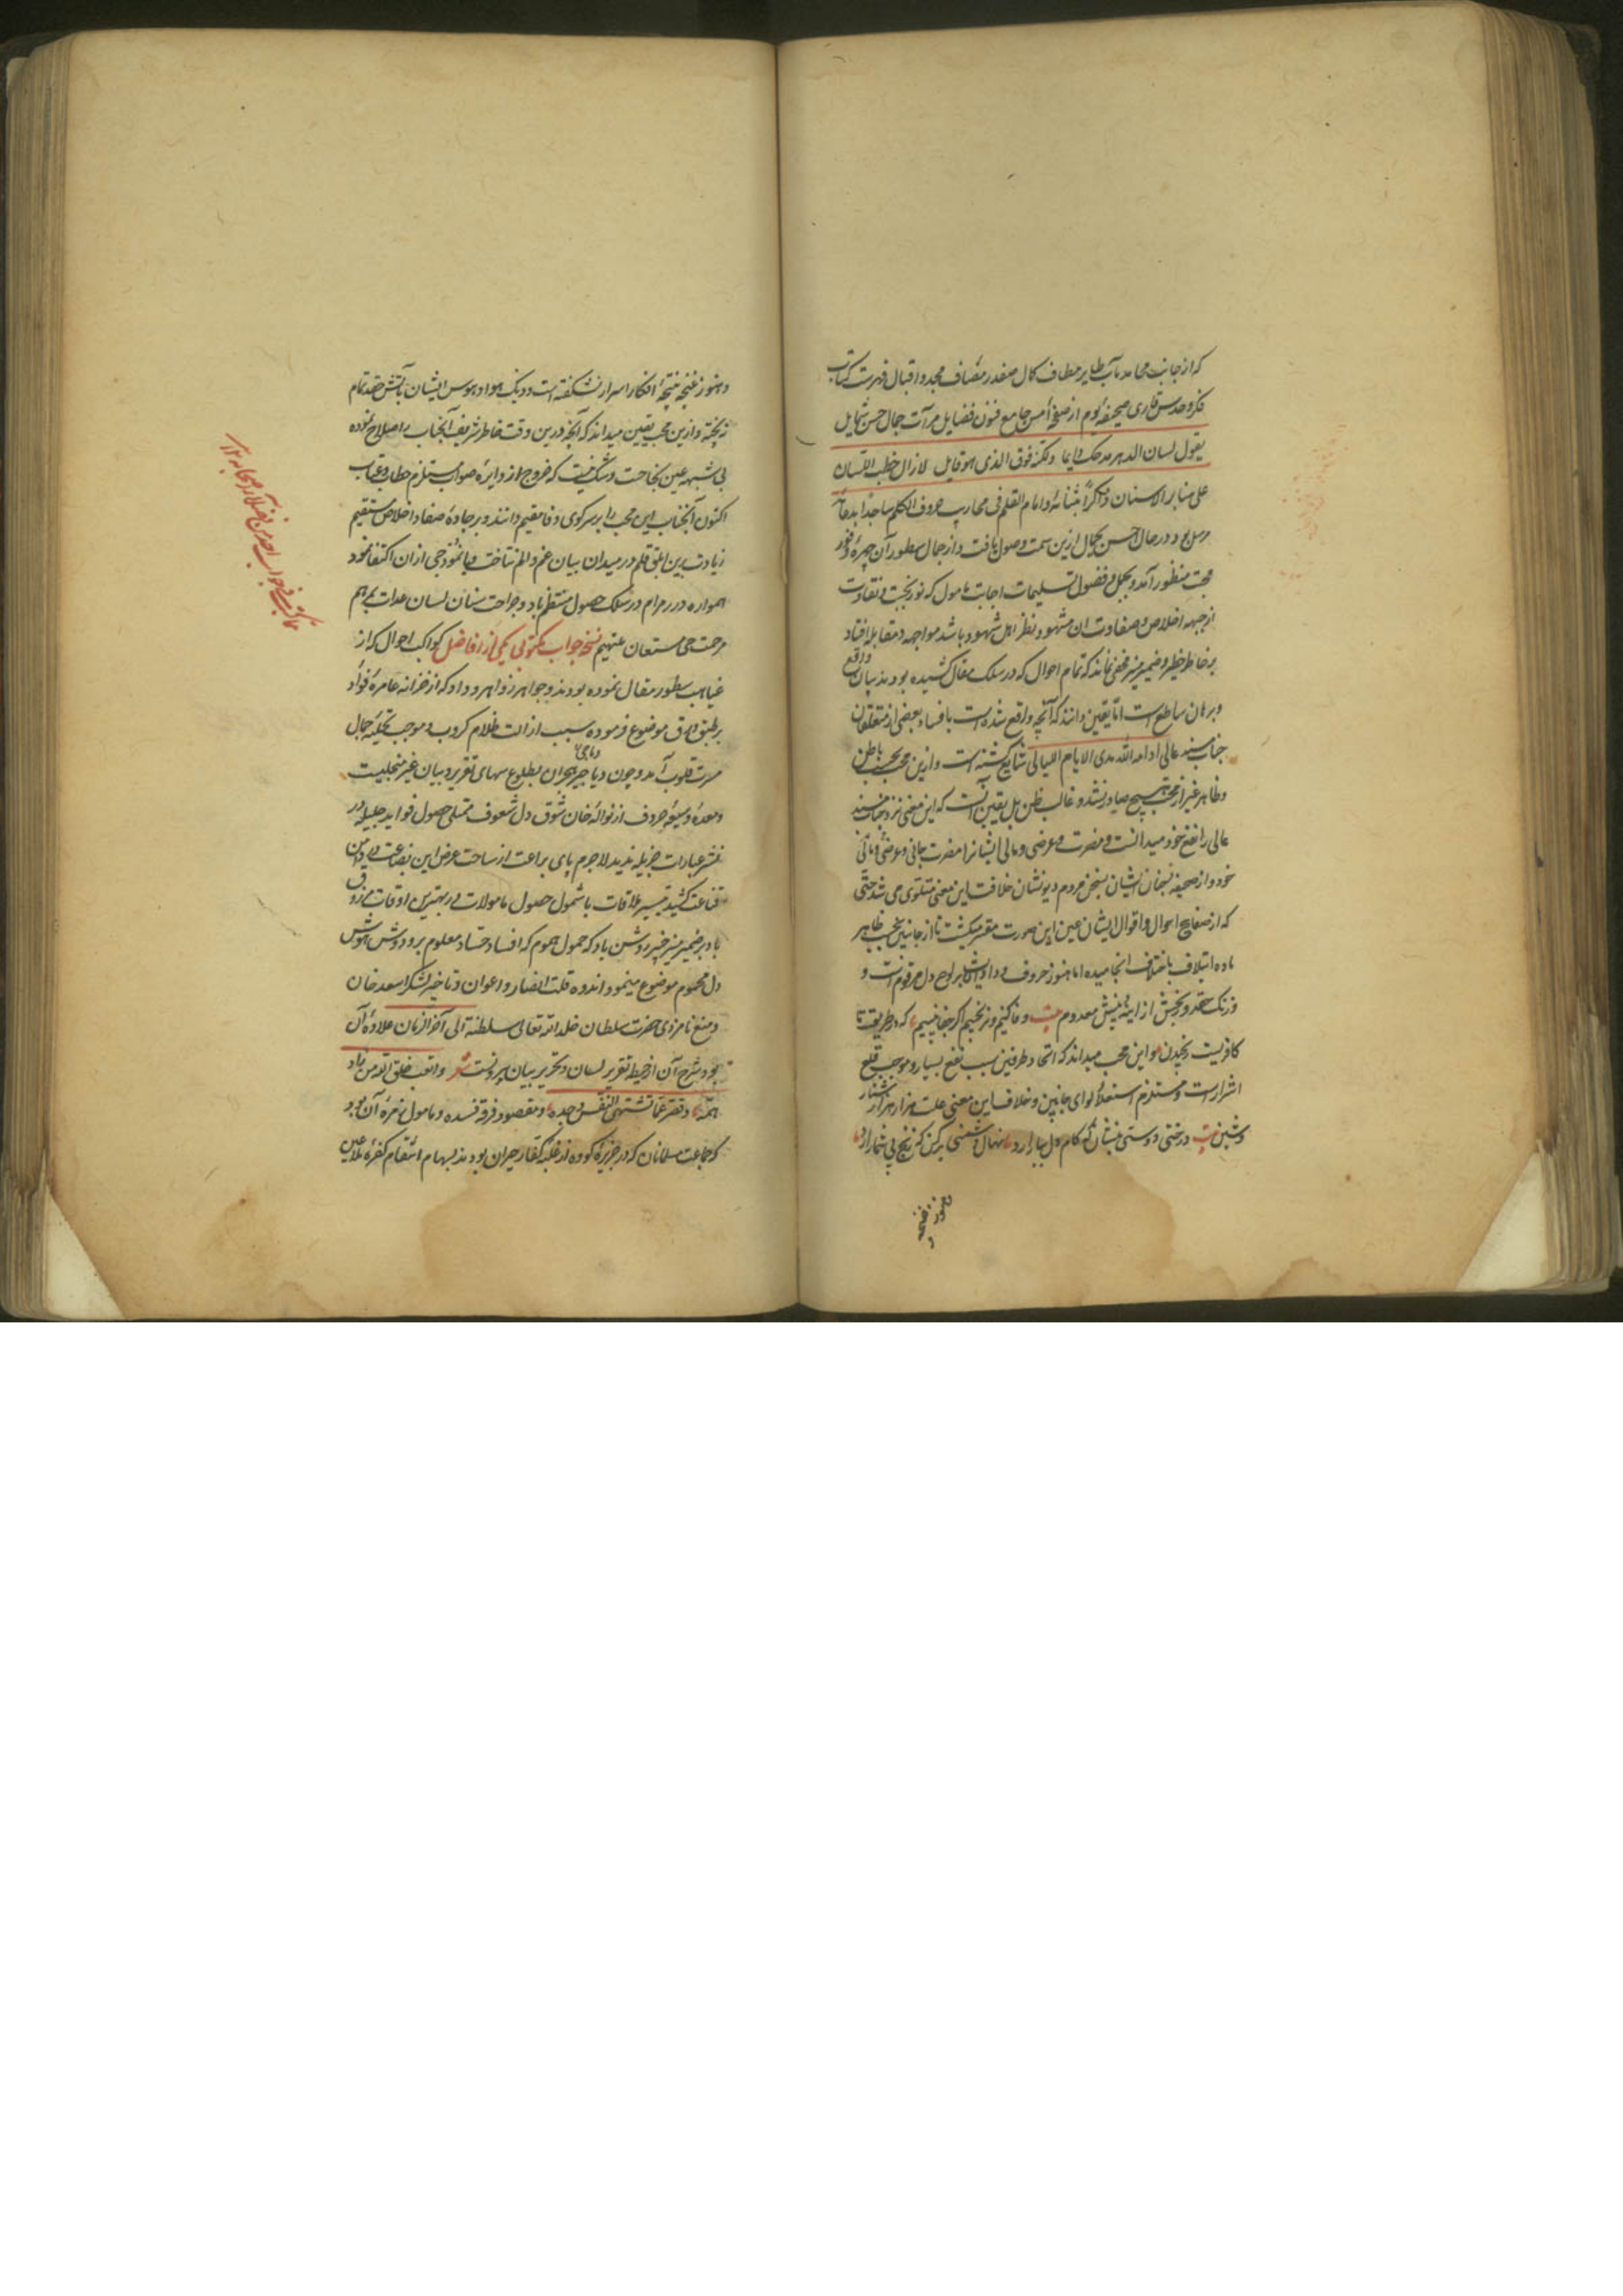 که از جانب محامد مآب طایر مطاف کمال صفدر مصاف مجد و اقبال فهرست کتاب
فکر و حدس قاری صحیفه یوم از صفحه امس جامع فنون فضایل مرآت جمال حسن شمایل
یقول لسان الدهر مدحک دایما ولکنه فوق الذی هو قایل لازال خطب اللسان
علی منابر الاسنان ذاکراً بثنائه و امام القلم فی محاریب حروف الکلم ساجداً بدعائه
مرسل بود در حال احسن یحکی ازین سمت وصول یافت و از جمال سطور آن چهره وفور
محبت منظور آمد و بکل فضول تسلیمات اجابت مامول که نور نجبت و نقاوت
از جبهه اخلاص و صفاوت ان مشهود نظر اهل شهود باشد مواجهه و مقابله افتاد
بر خاطر خطیر و ضمیر منیر مخفی نماند که تمام احوال که در سلک مقال کشیده بودند بیان واقع
و برهان ساطع است اما یقین دانند که آنچه واقع شده است بافساد بعضی از متعلقان
جناب مسند عالی ادامه الله مدی الایام اللیالی شایع گشته است و ازین محب بحسب باطن
و ظاهر غیر از محبت هیچ صادر نشده و غالب ظن بل یقین آنست که این معنی نزد جناب مسند
عالی را نفع خود میدانست و مضرت عرضی و مالی ایشانرا مضرت جانی و عرضی و مالی
خود و از صحیفه سخنان ایشان بسخن مردم دیو نشان خلافت این معنی متلوّی می شد حتّی
که از صفایح احوال و اقوال ایشان عین این صورت مفسر میگشت تا از جانبین بحسب ظاهر
ماده ایتلاف باختلاف انجامیده اما هنوز حروف وداد ایشان بر لوح دل مرقوم است و
و زنگ حقد و رنجش از اینهٔ بینش معدوم بیت وفا کنیم و نرنجیم اگر جفا بینیم که در طریقت ما
کافریست رنجیدن و این محب میداند که اتحاد طرفین سبب نفع بسیار و موجب قلع
اشرارست و مستلزم استعلاء لوای جانبین و خلاف این معنی علت هزار هزار شنار
و شین بیت درخت دوستی بنشان که کام دل ببار آرد نهال دشمنی برکن که رنج بی شمار آرد
و هنوز غنچه
و هنوز غنچه نتیجهٔ افکار اسرار نشکفته است و دیک هوا و هوس ایشان بآتش حقد تمام
نپخته و ازین محب یقین میداند که آنچه درین وقت خاطر شریف آنجناب باصلاح نموده
بی شبهه عین نجاحت و شک نیست که خروج از دایرهٔ صواب مستلزم خطا و عتاب
اکنون آنجناب این محب را بر سر کوی وفا مقیم دانند و بر جادهٔ صفا و اخلاص مستقیم
زیادت برین ابلق قلم در میدان بیان غم و الم نتاخت و بانموذجی از ان اکتفا نمود
همواره درر مرام در سلک حصول منتظم باد و جراحت سنان لسان عدات بمرهم
مرحمت حی مستعان ملتهم نسخه جواب مکتوبی یکی از افاضل کواکب احوال که از
غیاهب سطور مقال نموده بودند و جواهر زواهر وداد که از خزانه عامرهٔ فؤاد
بر طبق ورق موضوع فرموده سبب ازالت ظلام کروب و موجب تحلیهٔ جمال
مسرت قلوب آمد و چون دیاجیر هجران بطلوع سهای تقریر و بیان غیر منجلیست
دیاجی
و معدهٔ وسیعهٔ حروف از نوالهٔ خان شوق دل شعوف ممتلی حصول فواید جلیله در
نشر عبارات جزیله ندید لاجرم پای براعت از ساحت عرض این بضاعت در دامن
قناعت کشید تیسیر ملاقات باشمول حصول مامولات در بهترین اوقات مرزوق
باد بر ضمیر منیر خبیر روشن باد که حمول هموم که افساد حساد معلوم بر دوش هوش
دل مهموم موضوع مینمود و اندوه قلت انصار و اعوان و تاخیر لشکر اسعد خان
و منع نامزدی حضرت سلطان خلد الله تعالی سلطنته الی آخر الزمان علاوهٔ آن
بود شرح آن از حیطهٔ تقریر لسان و تحریر بیان بیرونست شعر و اتعب خلق الله من زاد
همّه و قصر عمّا تشتهی النفس وجده و مقصود فرقه فسده و مامول زمرهٔ آن بود
که جماعت مسلمانان که در جزیرهٔ کووه از غلبه کفار حیران بودند بسهام انتقام کفرهٔ ملاعین